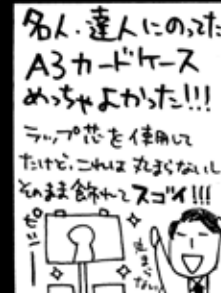 名人・達人にのってた
A3カードケース
めっちゃよかった!!!
ラップ芯を使用して
たけど、これは丸まらないし
そのまま飾れてスゴイ!!!
ピシー
丸まらない